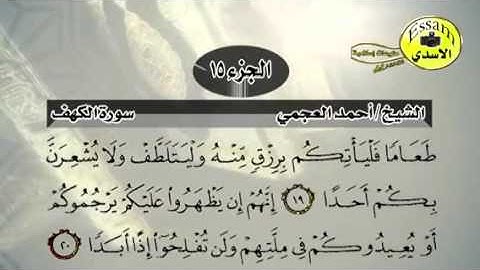 Essam
الأسدي
الجزء ١٥
الشيخ / أحمد العجمي
سورة الكهف
طَعَامًا فَلْيَأْتِكُم بِرِزْقٍ مِّنْهُ وَلْيَتَلَطَّفْ وَلَا يُشْعِرَنَّ
بِكُمْ أَحَدًا ١٩ إِنَّهُمْ إِن يَظْهَرُوا۟ عَلَيْكُمْ يَرْجُمُوكُمْ
أَوْ يُعِيدُوكُمْ فِى مِلَّتِهِمْ وَلَن تُفْلِحُوٓا۟ إِذًا أَبَدًا ٢٠